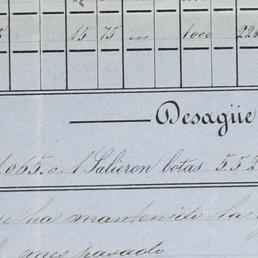 15 75 1000 22
Desagüe
1.065.0 Salieron botas 5.52
ha mantenido la
mes pasado